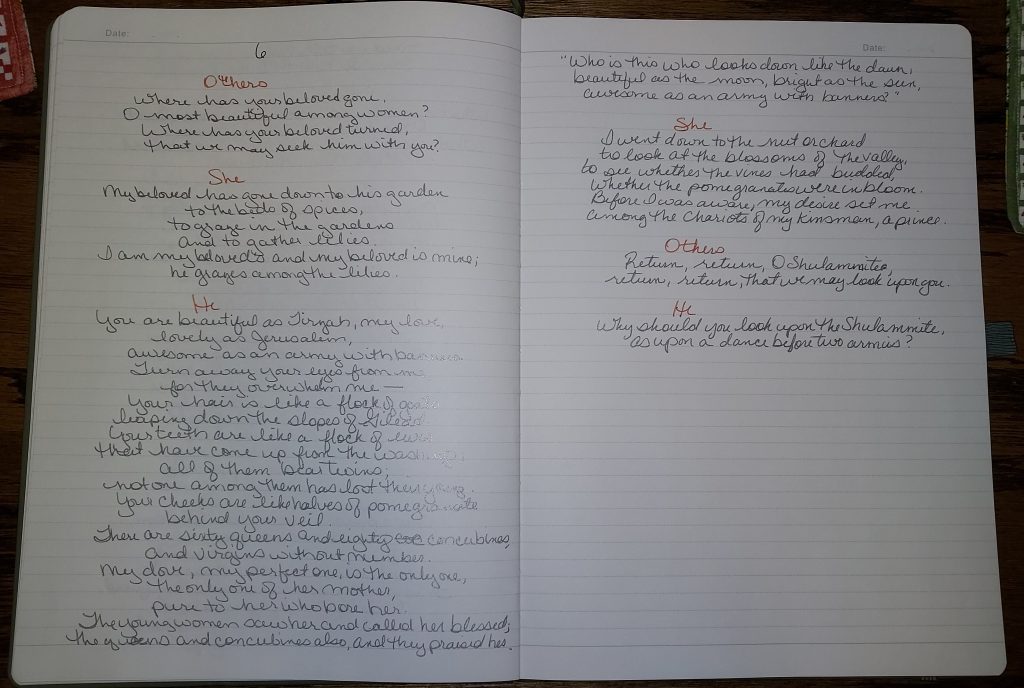 Date:
6
Others
Where has your beloved gone,
O most beautiful among women?
Where has your beloved turned,
that we may seek him with you?
She
My beloved has gone down to his garden
to the beds of spices,
to graze in the gardens
and to gather lilies.
I am my beloved's and my beloved is mine;
he grazes among the lilies.
He
You are beautiful as Tirzah, my love,
lovely as Jerusalem,
awesome as an army with banners.
Turn away your eyes from me,
for they overwhelm me —
Your hair is like a flock of goats
leaping down the slopes of Gilead.
Your teeth are like a flock of ewes
that have come up from the washing;
all of them bear twins;
not one among them has lost their young.
Your cheeks are like halves of pomegranate
behind your veil.
There are sixty queens and eighty concubines,
and virgins without number.
My dove, my perfect one, is the only one,
the only one of her mother,
pure to her who bore her.
The young women saw her and called her blessed;
the queens and concubines also, and they praised her.
Date:
"Who is this who looks down like the dawn,
beautiful as the moon, bright as the sun,
awesome as an army with banners?"
She
I went down to the nut orchard
to look at the blossoms of the valley,
to see whether the vines had budded,
whether the pomegranates were in bloom.
Before I was aware, my desire set me
among the chariots of my kinsman, a prince.
Others
Return, return, O Shulammite,
return, return, that we may look upon you.
He
Why should you look upon the Shulammite,
as upon a dance before two armies?